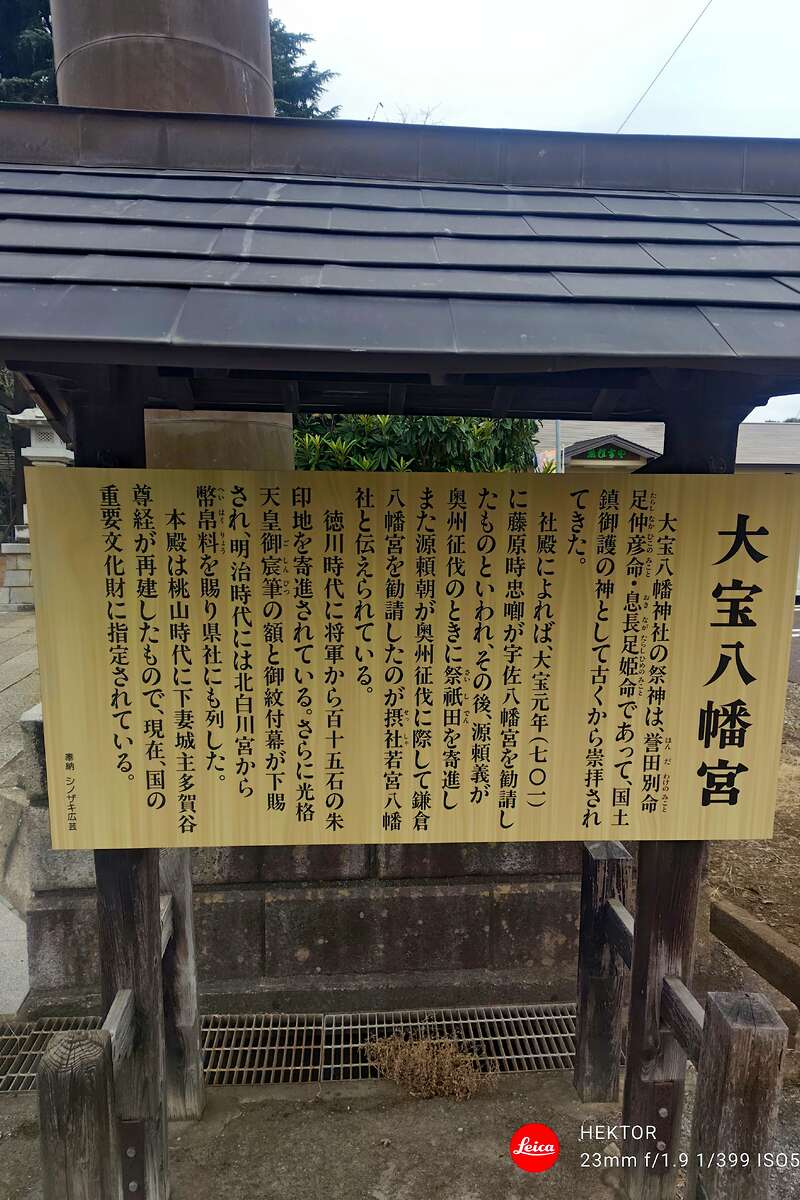 大宝八幡宮
大宝八幡神社の祭神は、誉田別命
足仲彦命・息長足姫命であって、国土
鎮御護の神として古くから崇拝され
てきた。
社殿によれば、大宝元年(七〇一)
に藤原時忠卿が宇佐八幡宮を勧請し
たものといわれ、その後、源頼義が
奥州征伐のときに祭祇田を寄進し
また源頼朝が奥州征伐に際して鎌倉
八幡宮を勧請したのが摂社若宮八幡
社と伝えられている。
徳川時代に将軍から百十五石の朱
印地を寄進されている。さらに光格
天皇御宸筆の額と御紋付幕が下賜
され、明治時代には北白川宮から
幣帛料を賜り県社にも列した。
本殿は桃山時代に下妻城主多賀谷
尊経が再建したもので、現在、国の
重要文化財に指定されている。
奉納 シノザキ広芸
Leica
HEKTOR
23mm f/1.9 1/399 ISO5